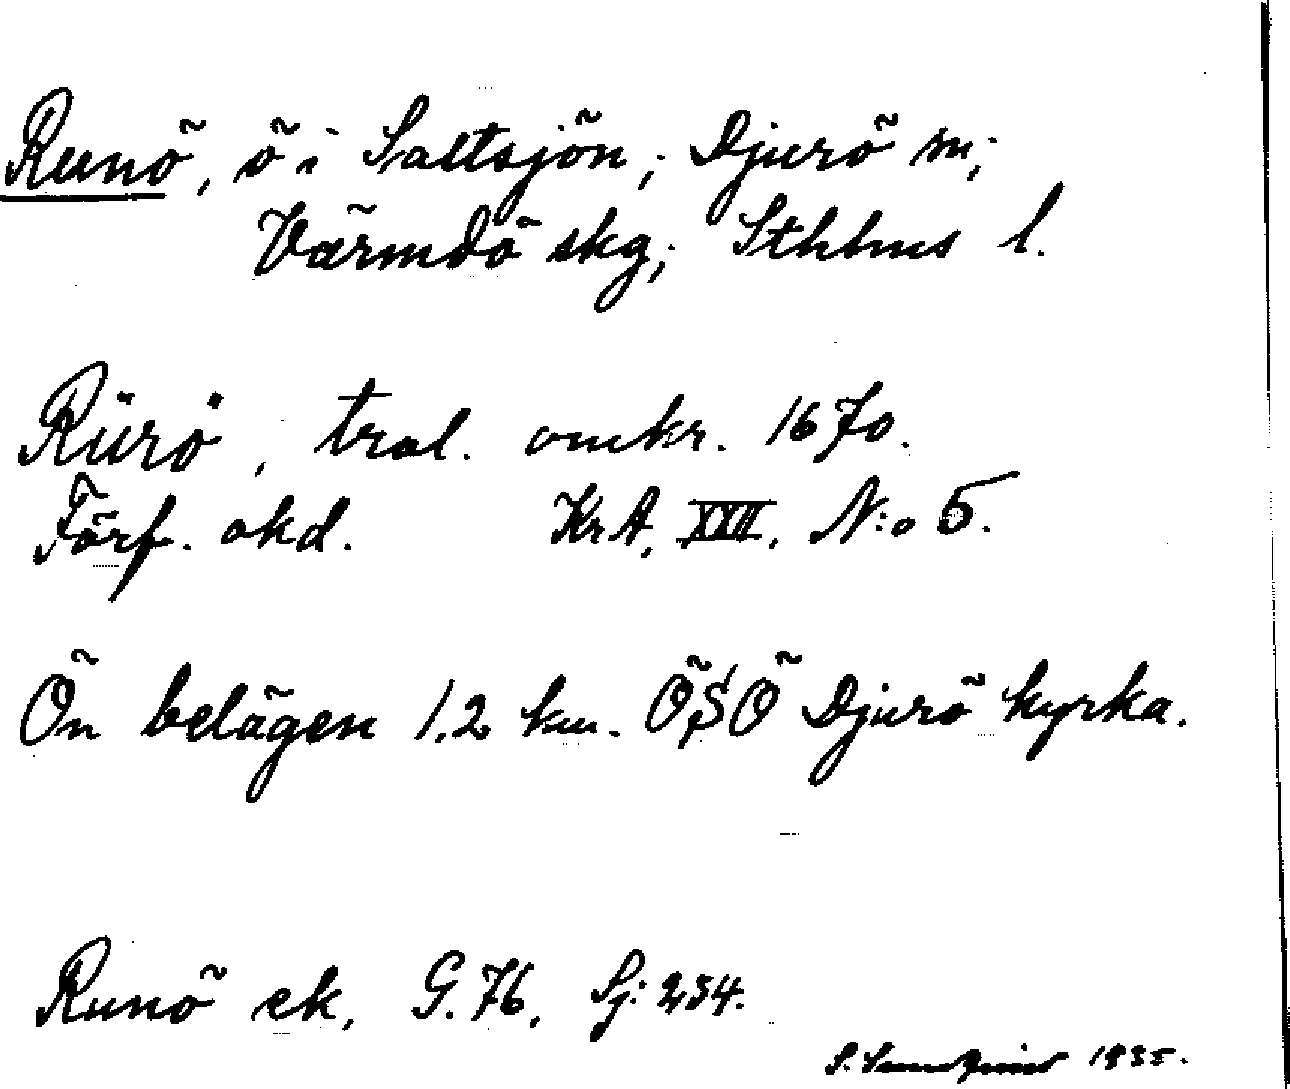 Runö, ö i Saltsjön; Djurö sn;
Värmdö skg; Sthlms l.
Rürö, tral. omkr. 1670.
Förf. okd. KrA, XXII. N:o 5.
Ön belägen 1,2 km. ÖSÖ Djurö kyrka.
Runö ek, G.76. Sj: 234.
S. 1935.